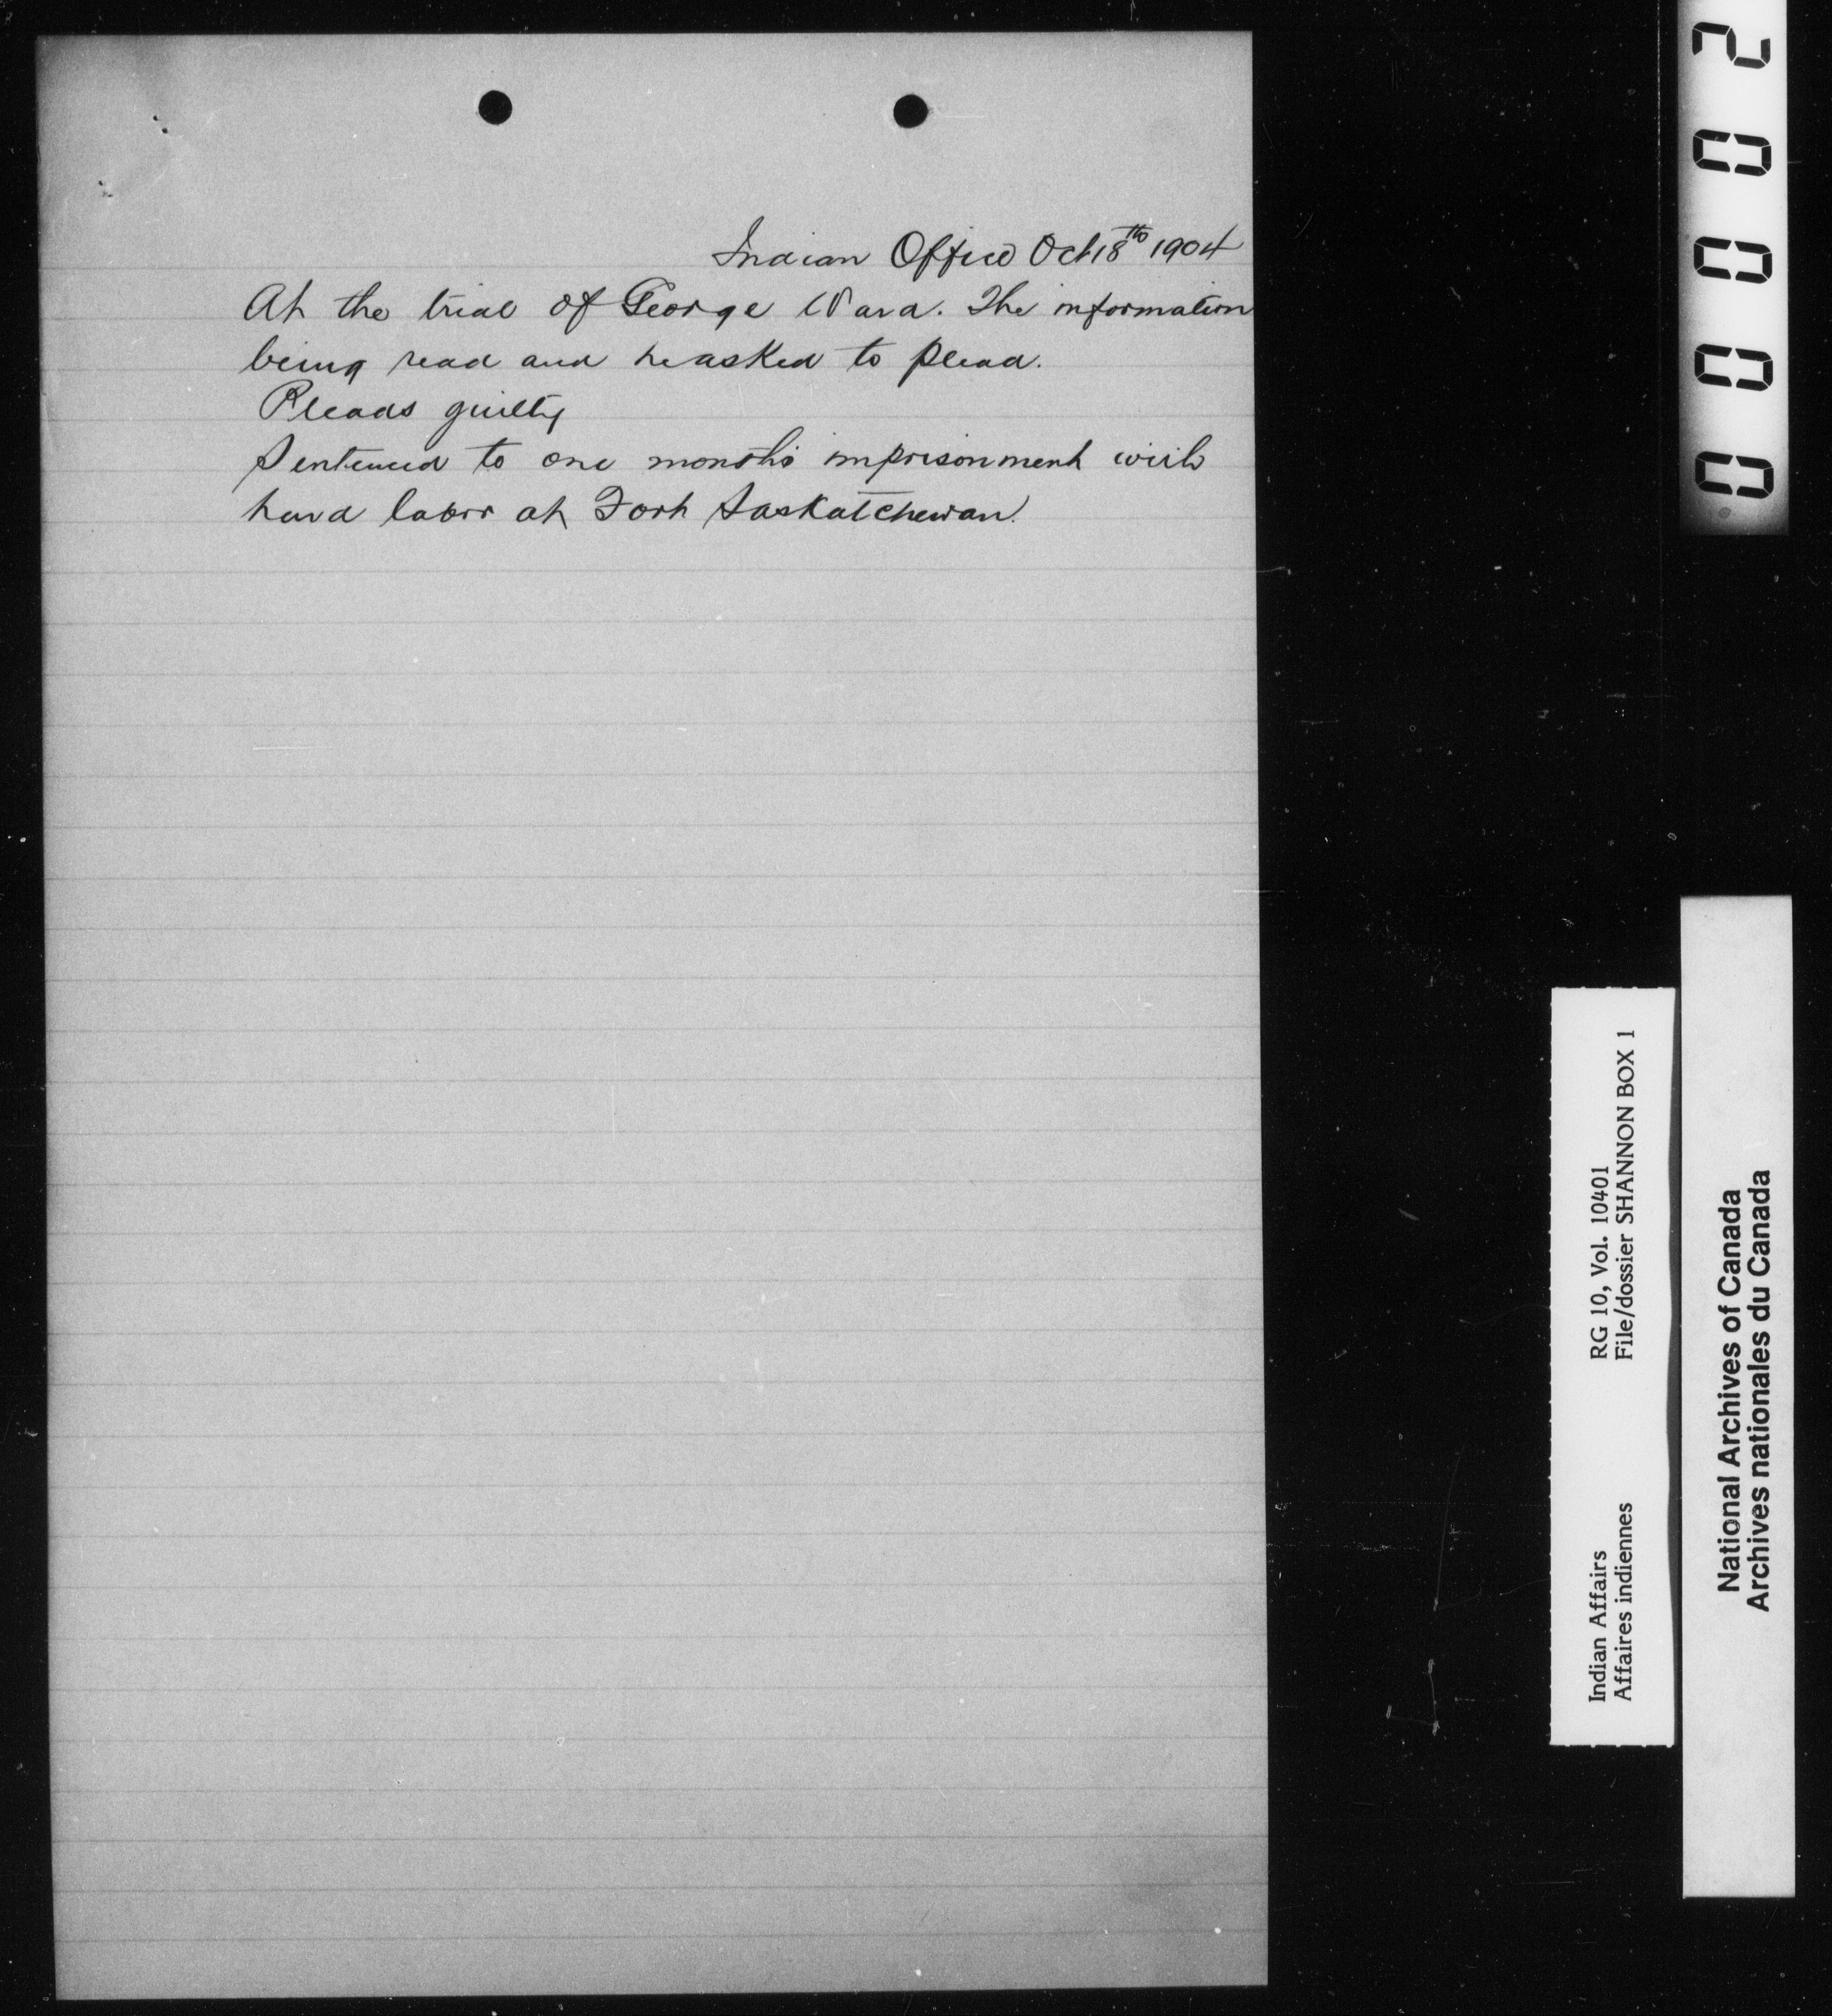 Indian Office Oct 18th 1904
At the trial of George Ward. The information
being read and he asked to plead.
Pleads guilty
Sentenced to one month's imprisonment with
hard labor at Fort Saskatchewan.
00002
Indian Affairs RG 10, Vol. 10401
Affaires indiennes File/dossier SHANNON BOX 1
National Archives of Canada
Archives nationales du Canada